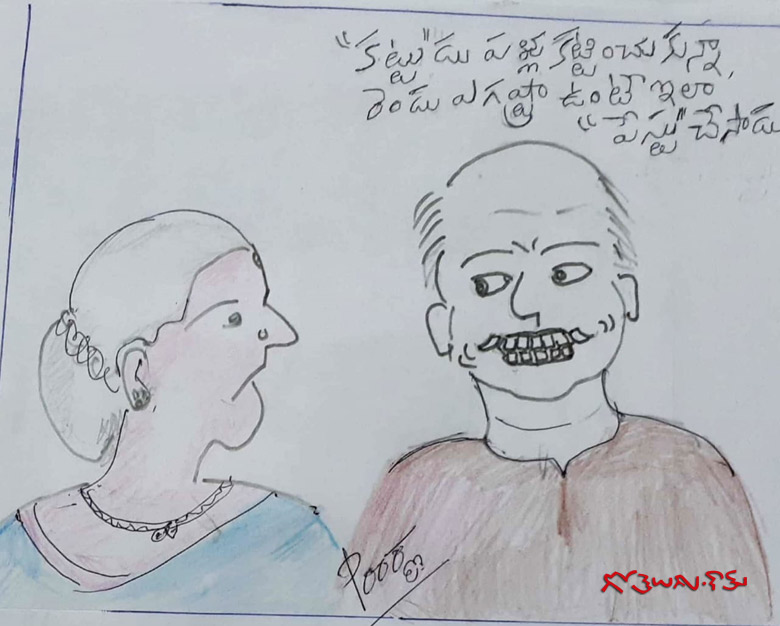 "కట్టు"డు పళ్ళు కట్టించుకున్నా,
రెండు ఎగస్ట్రా ఉంటే ఇలా
"పేస్టు" చేసాడు
గోతెలుగు.కామ్